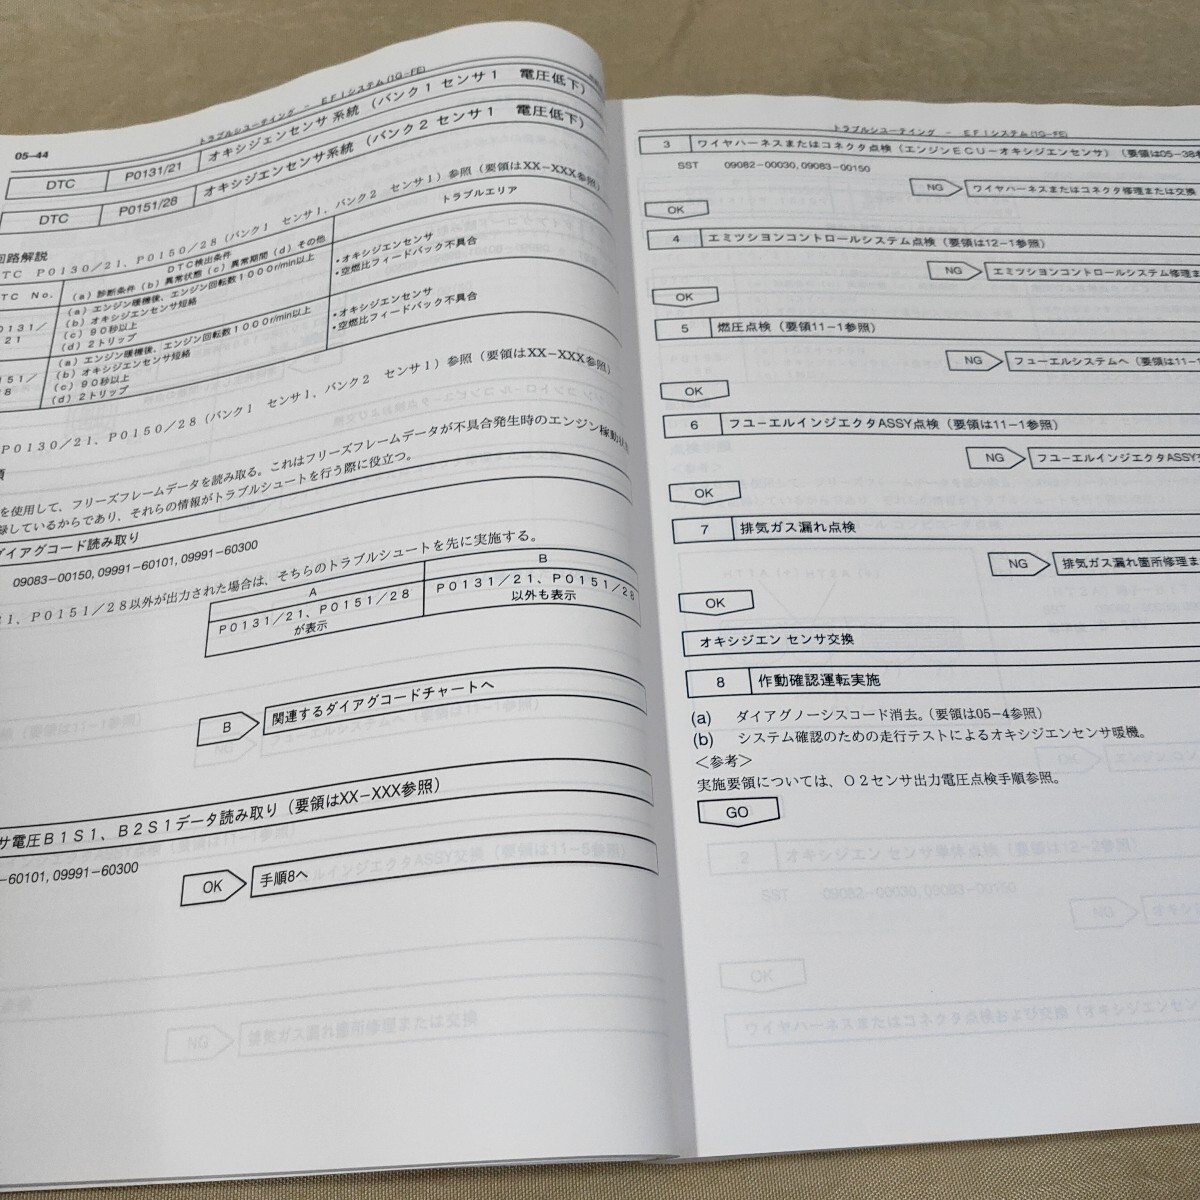 05-44
トラブルシューティング － EFIシステム(1G-FE)
DTC P0131/21 オキシジェンセンサ 系統 （バンク1 センサ1 電圧低下）
DTC P0151/28 オキシジエンセンサ系統 （バンク2 センサ1 電圧低下）
回路解説
TC P0130／21、P0150／28（バンク1 センサ1、バンク2 センサ1）参照（要領はXX−XXX参照）
TC No. DTC検出条件 トラブルエリア
(a)診断条件(b)異常状態(c)異常期間(d)その他
0131／
21
(a)エンジン暖機後、エンジン回転数1000r/min以上
(b)オキシジエンセンサ短絡
(c)90秒以上
(d)2トリップ
・オキシジエンセンサ
・空燃比フィードバック不具合
151／
8
(a)エンジン暖機後、エンジン回転数1000r/min以上
(b)オキシジエンセンサ短絡
(c)90秒以上
(d)2トリップ
・オキシジエンセンサ
・空燃比フィードバック不具合
P0130／21、P0150／28（バンク1 センサ1、バンク2 センサ1）参照（要領はXX−XXX参照）
を使用して、フリーズフレームデータを読み取る。これはフリーズフレームデータが不具合発生時のエンジン稼動状
録しているからであり、それらの情報がトラブルシュートを行う際に役立つ。
ダイアグコード読み取り
09083−00150, 09991−60101, 09991−60300
1、P0151／28以外が出力された場合は、そちらのトラブルシュートを先に実施する。
A B
P0131／21、P0151／28
が表示
P0131／21、P0151／28
以外も表示
B 関連するダイアグコードチャートへ
サ電圧B1S1、B2S1データ読み取り（要領はXX−XXX参照）
−60101, 09991−60300
OK 手順8へ
トラブルシューティング － EFIシステム(1G-FE)
3 ワイヤハーネスまたはコネクタ点検（エンジンECU−オキシジエンセンサ）（要領は05−38参
SST 09082−00030, 09083−00150
NG ワイヤハーネスまたはコネクタ修理または交換
OK
4 エミツシヨンコントロールシステム点検（要領は12−1参照）
NG エミツシヨンコントロールシステム修理ま
OK
5 燃圧点検（要領11−1参照）
NG フューエルシステムへ（要領は11−1
OK
6 フユーエルインジエクタASSY点検（要領は11−1参照）
NG フユーエルインジエクタASSY交
OK
7 排気ガス漏れ点検
NG 排気ガス漏れ箇所修理ま
OK
オキシジエン センサ交換
8 作動確認運転実施
(a) ダイアグノーシスコード消去。（要領は05−4参照）
(b) システム確認のための走行テストによるオキシジエンセンサ暖機。
＜参考＞
実施要領については、O2センサ出力電圧点検手順参照。
GO